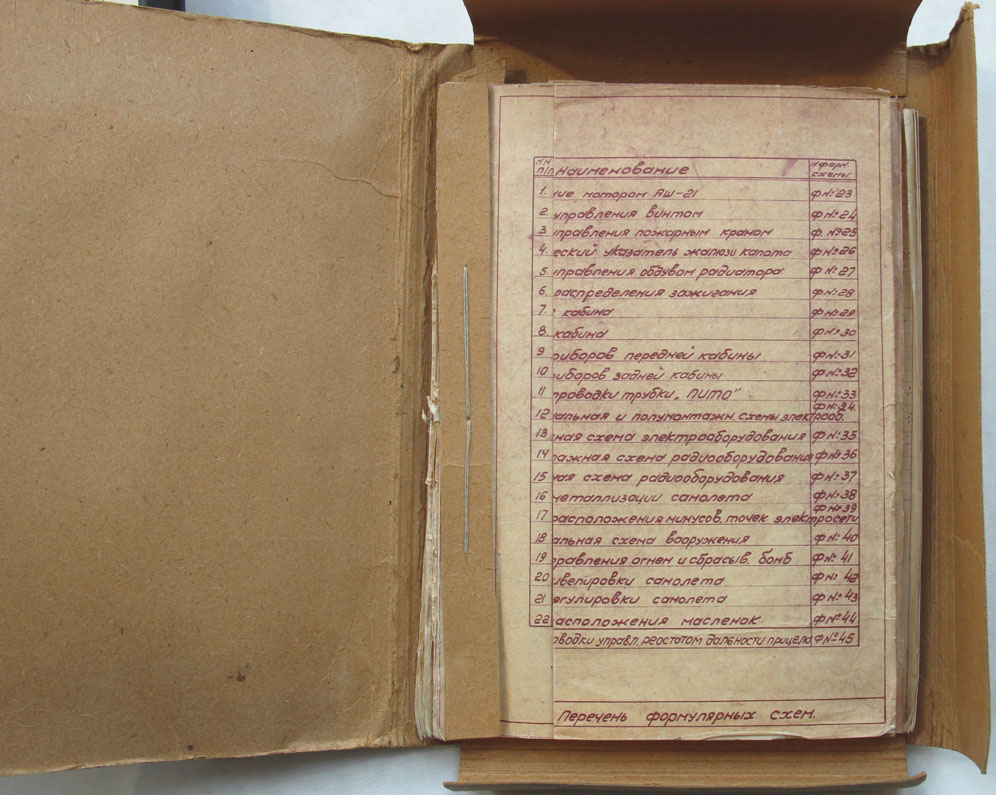 NN п/п Наименование N форм. схемы
1. ние мотором АШ-21 Ф№23
2. управления винтом Ф№24
3 управления пожарным краном Ф.№25
4. еский указатель жалюзи капота Ф№26
5. управления обдувом радиатора Ф№27
6. распределения зажигания Ф№28
7. кабина Ф№29
8. кабина Ф№30
9 риборов передней кабины Ф№31
10 риборов задней кабины Ф№32
11 проводки трубки „ПИТО" Ф№33
12 альная и полумонтажн. схемы электрооб. Ф№34.
13 ная схема электрооборудования Ф№35
14 ажная схема радиооборудования Ф№36
15 ная схема радиооборудования Ф№37
16 металлизации самолета Ф№38
17 расположения минусов. точек электросети Ф№39
18 альная схема вооружения Ф№40
19 правления огнем и сбрасыв. бомб Ф№41
20 ивелировки самолета Ф№42
21 егулировки самолета Ф№43
22 асположения масленок Ф№44
оводки управл. реостатом дальности прицела Ф№45
Перечень формулярных схем.